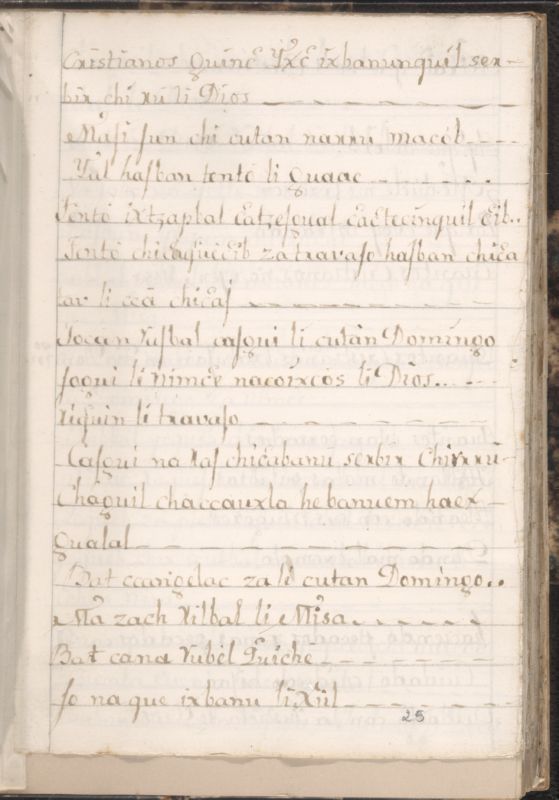 Cristianos quinc Yxc ixbanunquil ser-
bir chi ru li Dios
Masi jun chi cutan narru macob
Yal hasban tento li quaae
Tento ixtzapbal catzesqual caetecinquil eib..
Tento chicasuiceib za travaso hasban chica
ar li cca chicas
Jocan rusbal casqui li cutan Domingo
soqui li nimce nacoixcos li Dios..
riquin li travaso
Casqui na ras chicabanu serbir chirru-
chaquil chaccauxla hebanuem haex
qualal
Bat ccangelac za li cutan Domingo..
Ma zach rilbal li Misa
Bat cana rubel Quiche
Jo na que ixbanu li Xul
25